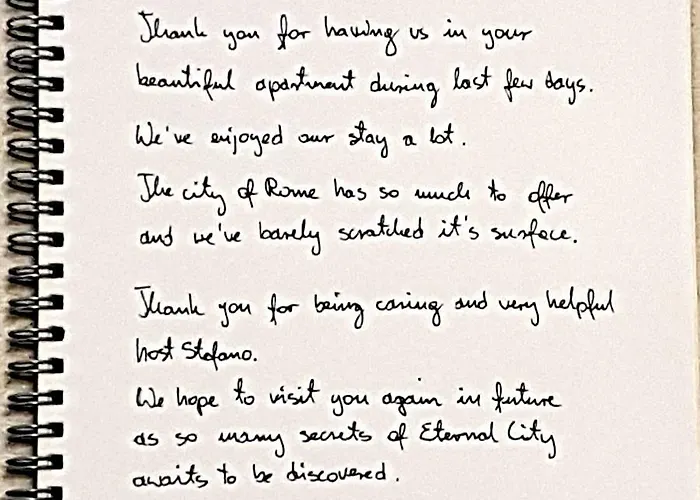 Thank you for having us in your
beautiful apartment during last few days.
We've enjoyed our stay a lot.
The city of Rome has so much to offer
and we've barely scratched it's surface.
Thank you for being caring and very helpful
host Stefano.
We hope to visit you again in future
as so many secrets of Eternal City
awaits to be discovered.